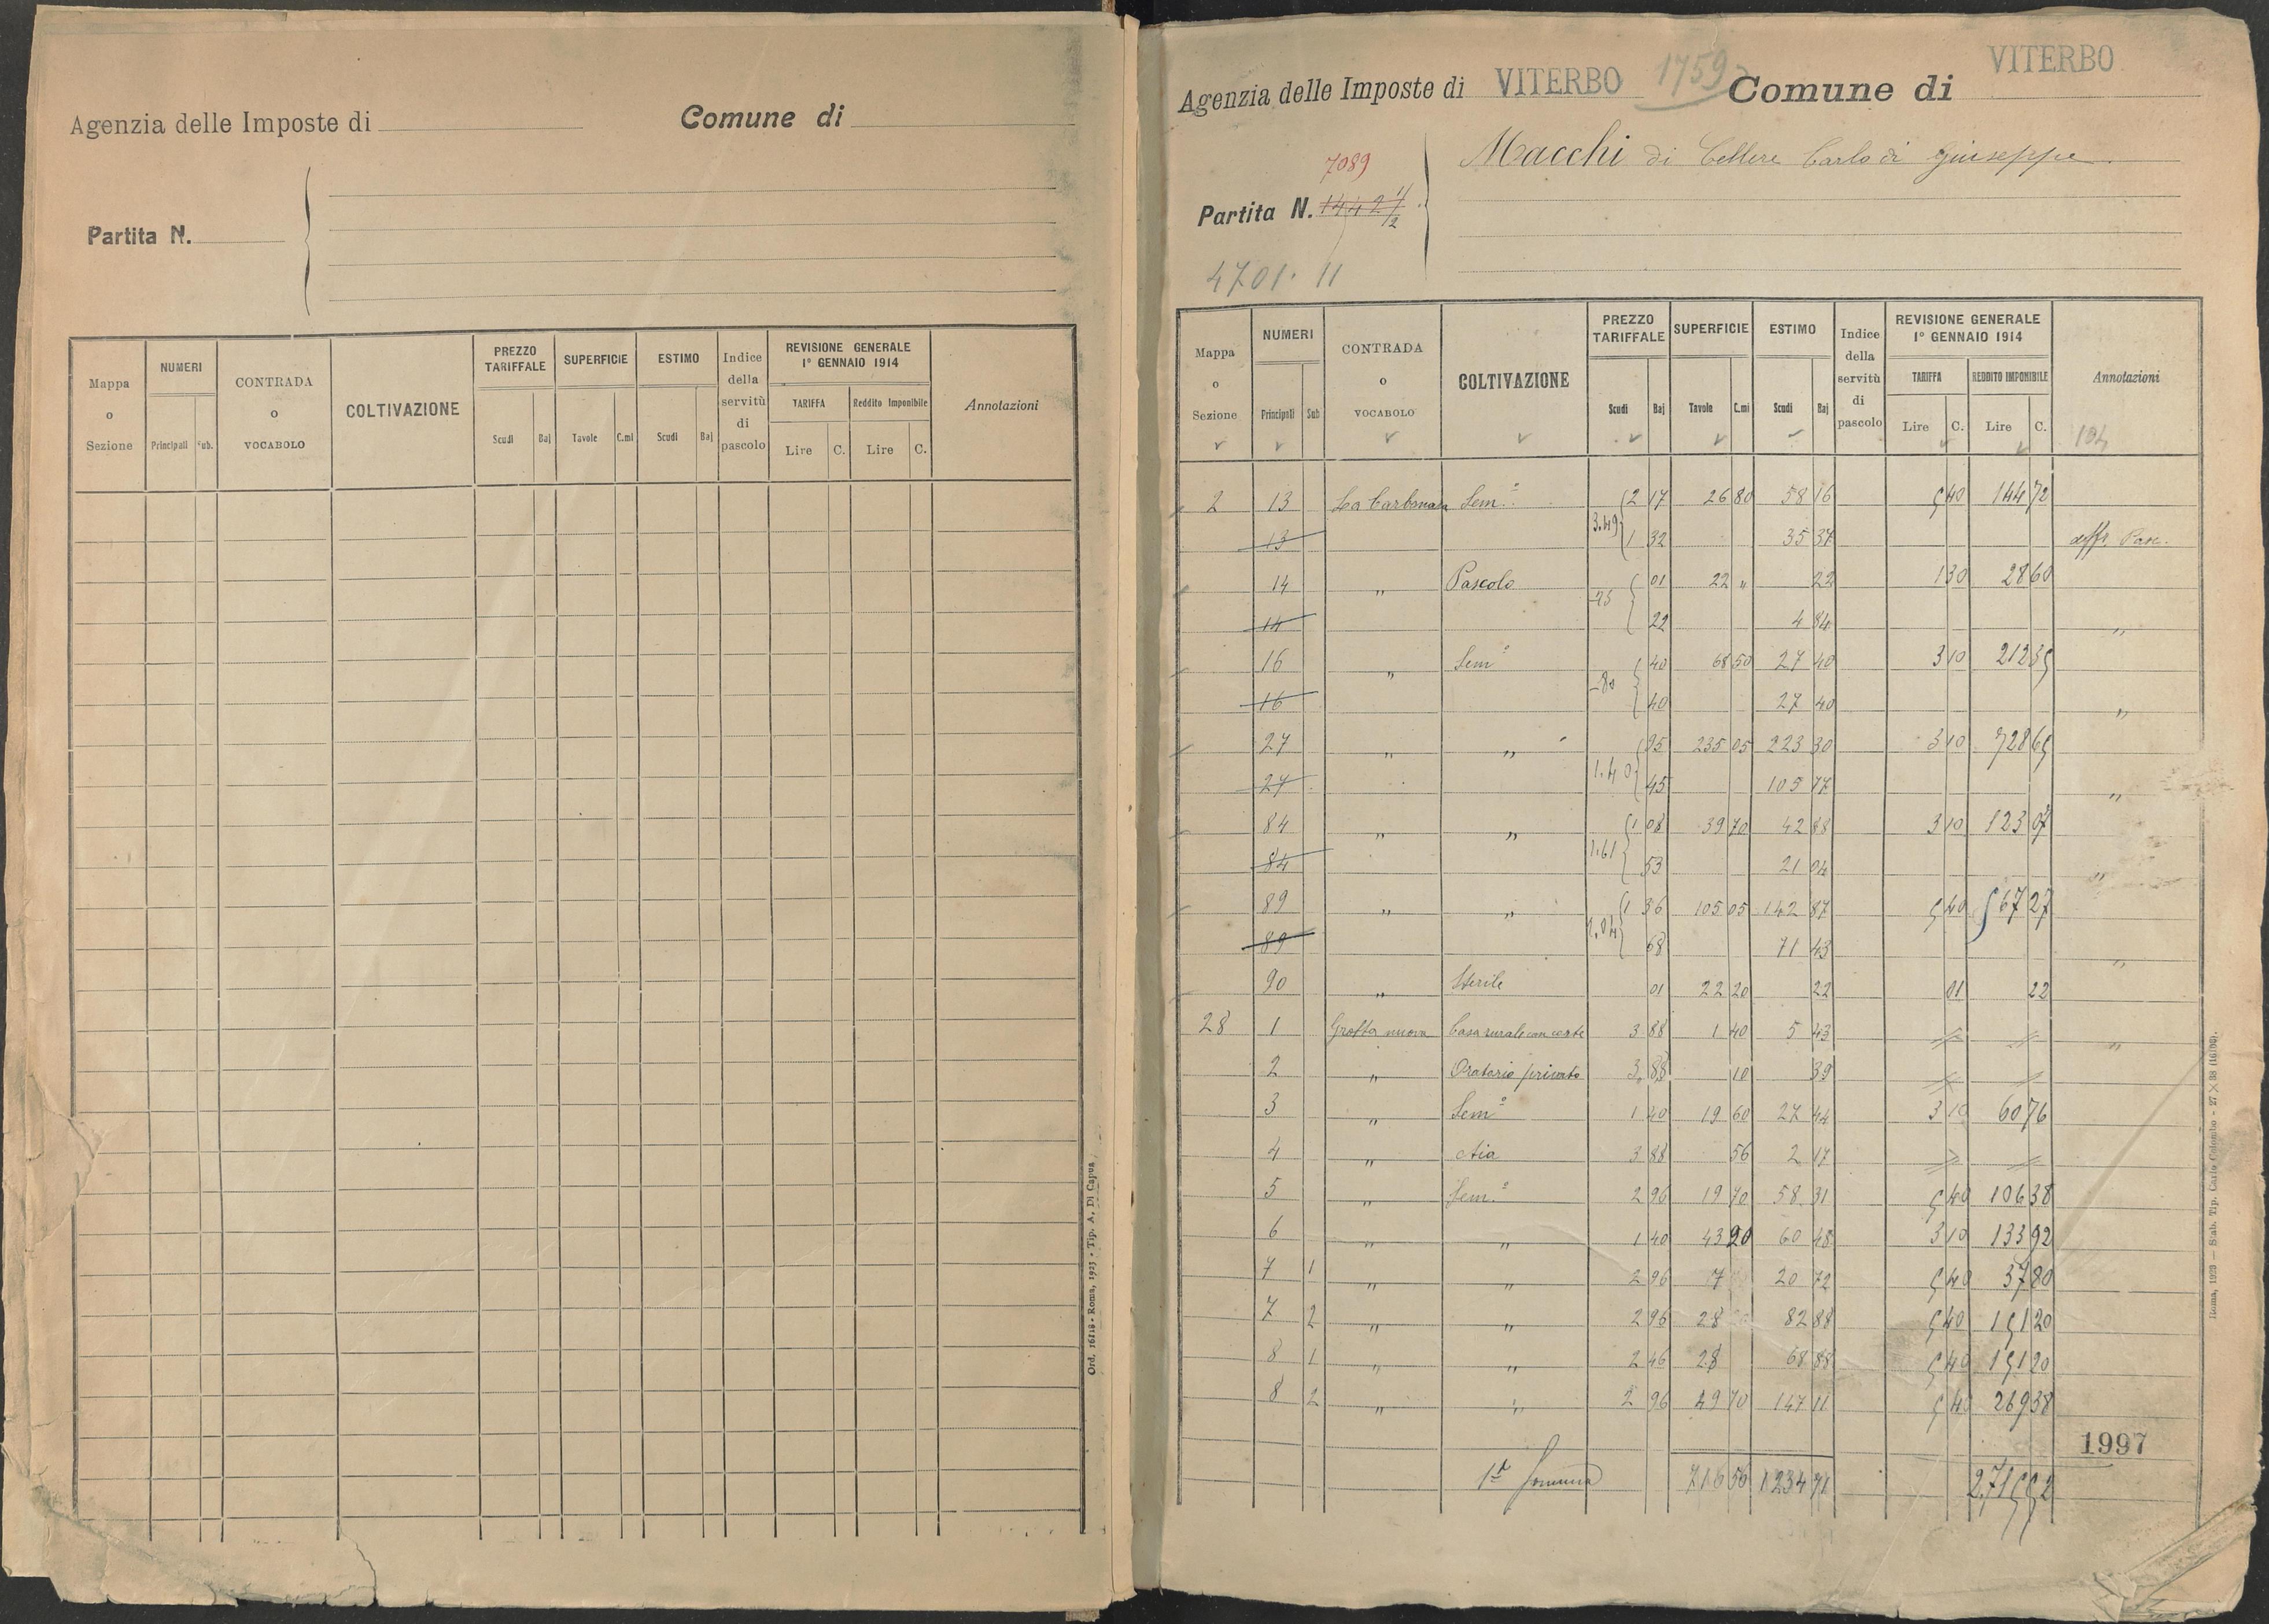 Agenzia delle Imposte di
Comune di
Partita N.
Mappa o Sezione
NUMERI
Principali
Sub.
CONTRADA o VOCABOLO
COLTIVAZIONE
PREZZO TARIFFALE
Scudi Baj
SUPERFICIE
Tavole C.mi
ESTIMO
Scudi Baj
Indice della servitù di pascolo
REVISIONE GENERALE 1° GENNAIO 1914
TARIFFA
Lire C.
Reddito Imponibile
Lire C.
Annotazioni
Ord. 16118 - Roma, 1923 - Tip. A. Di Capua
Agenzia delle Imposte di VITERBO 1759 Comune di VITERBO
Macchi di Cellere Carlo di Giuseppe
7089
Partita N. 14421/2
4701. 11
Mappa o Sezione
NUMERI
Principali Sub
CONTRADA o VOCABOLO
COLTIVAZIONE
PREZZO TARIFFALE
Scudi Baj
SUPERFICIE
Tavole C.mi
ESTIMO
Scudi Baj
Indice della servitù di pascolo
REVISIONE GENERALE 1° GENNAIO 1914
TARIFFA
Lire C.
REDDITO IMPONIBILE
Lire C.
Annotazioni
104
2 13 La Carbonara Sem.º 2 17 26 80 58 16 5 40 144 72
13 3.49 1 32 35 37 diffr. Pasc.
14 " Pascolo 01 22 " 22 1 30 28 60
14 22 4 84 "
16 " Semº 40 68 50 27 40 3 10 212 35
16 -80 40 27 40 "
27 " " 95 235 05 223 30 3 10 728 65
27 1.40 45 105 77 "
84 " " 1 08 39 70 42 88 3 10 123 07
84 1.61 53 21 04 "
89 " " 1 36 105 05 142 87 5 40 567 27
89 2.04 68 71 43 "
90 " Sterile 01 22 20 22 01 22
28 1 Grotta nuova Casa rurale con corte 3 88 1 40 5 43 "
2 " Oratorio privato 3 88 10 39
3 " Semº 1 40 19 60 27 44 3 10 60 76
4 " Aia 3 88 56 2 17
5 " Sem.º 2 96 19 70 58 31 5 40 106 38
6 " " 1 40 43 20 60 48 3 10 133 92
7 1 " " 2 96 7 20 72 5 40 37 80
7 2 " " 2 96 28 82 88 5 40 151 20
8 1 " " 2 46 28 68 88 5 40 151 20
8 2 " " 2 96 49 70 147 11 5 40 269 38
1997
1ª Somma 716 56 1234 71 2715 52
Roma, 1923 — Stab. Tip. Carlo Colombo - 27 × 38 (16100).